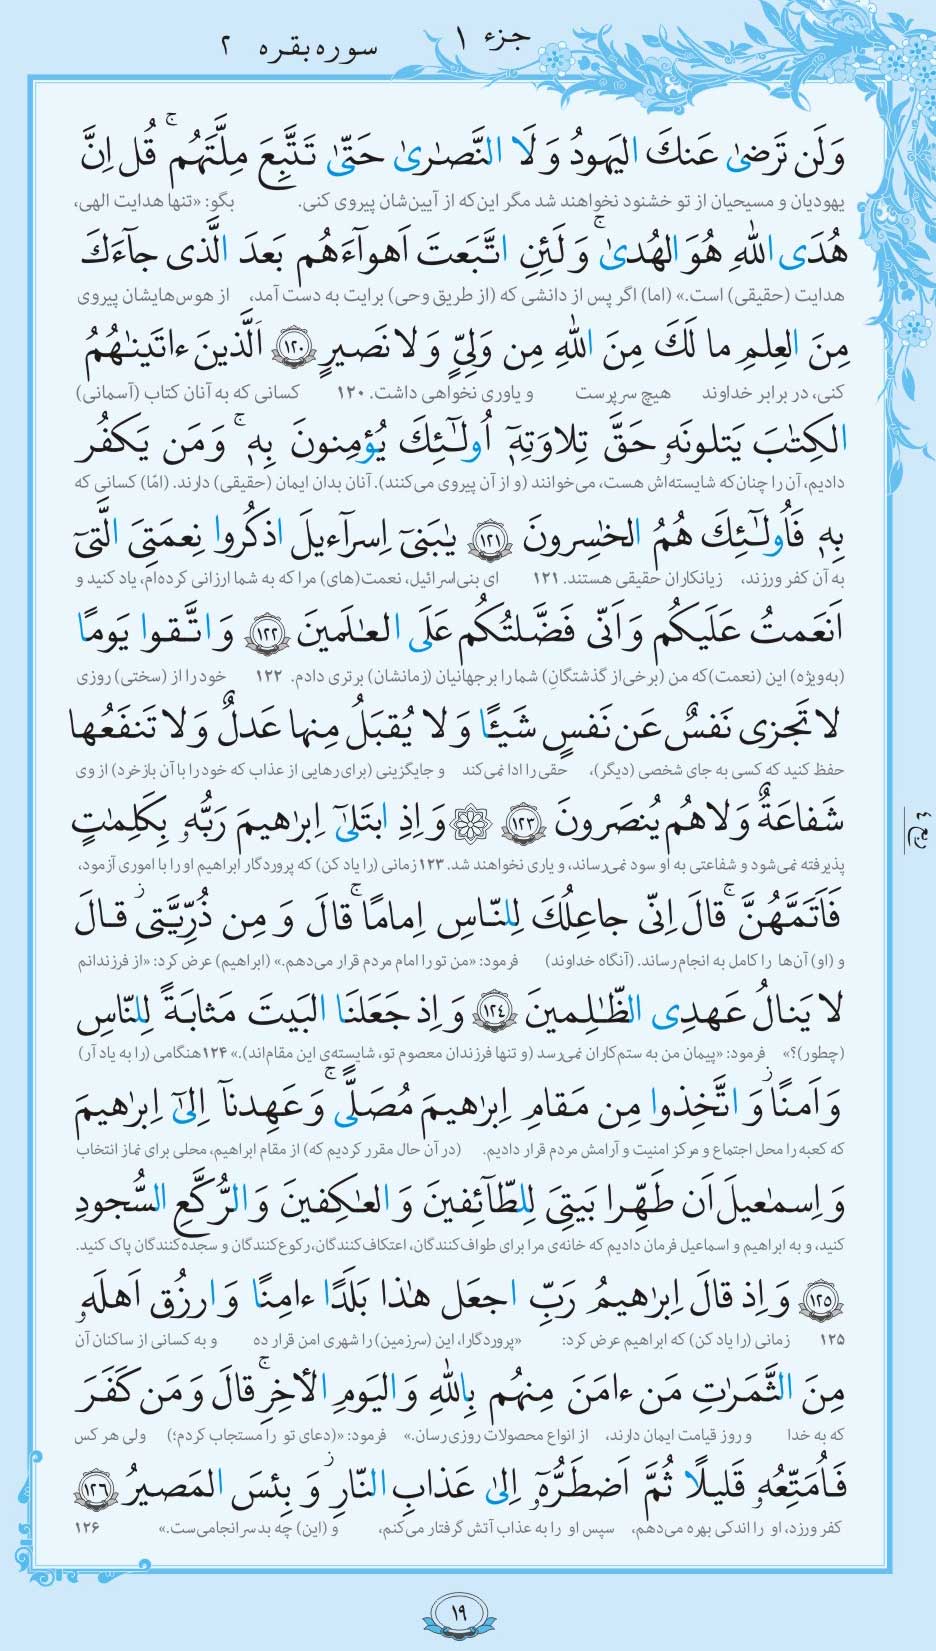 جزء ۱
سوره بقره ۲
وَلَن تَرضىٰ عَنكَ اليَهودُ وَلَا النَّصارىٰ حَتّىٰ تَتَّبِعَ مِلَّتَهُم ۚ قُل اِنَّ
یهودیان و مسیحیان از تو خشنود نخواهند شد مگر این‌که از آیین‌شان پیروی کنی. بگو: «تنها هدایت الهی،
هُدَى اللّٰهِ هُوَ الهُدىٰ ۚ وَلَئِنِ اتَّبَعتَ اَهوآءَهُم بَعدَ الَّذى جآءَكَ
هدایت (حقیقی) است.» (اما) اگر پس از دانشی که (از طریق وحی) برایت به دست آمد، از هوس‌هایشان پیروی
مِنَ العِلمِ ما لَكَ مِنَ اللّٰهِ مِن وَلِىٍّ وَلا نَصيرٍ ﴿۱۲۰﴾ اَلَّذينَ ءاتَينٰهُمُ
کنی، در برابر خداوند هیچ سرپرست و یاوری نخواهی داشت. ۱۲۰ کسانی که به آنان کتاب (آسمانی)
الكِتٰبَ يَتلونَهٗ حَقَّ تِلاوَتِهٖٓ اُولٰٓئِكَ يُؤمِنونَ بِهٖ ۚ وَمَن يَكفُر
دادیم، آن را چنان‌که شایسته‌اش هست، می‌خوانند (و از آن پیروی می‌کنند). آنان بدان ایمان (حقیقی) دارند. (امّا) کسانی که
بِهٖ فَاُولٰٓئِكَ هُمُ الخٰسِرونَ ﴿۱۲۱﴾ يٰبَنىٓ اِسرآءيلَ اذكُروا نِعمَتِىَ الَّتىٓ
به آن کفر ورزند، زیانکاران حقیقی هستند. ۱۲۱ ای بنی‌اسرائیل، نعمت(های) مرا که به شما ارزانی کرده‌ام، یاد کنید و
اَنعَمتُ عَلَيكُم وَاَنّى فَضَّلتُكُم عَلَى العٰلَمينَ ﴿۱۲۲﴾ وَاتَّقوا يَومًا
(به‌ویژه) این (نعمت) که من (برخی از گذشتگانِ) شما را بر جهانیان (زمانشان) برتری دادم. ۱۲۲ خود را از (سختی) روزی
لا تَجزى نَفسٌ عَن نَفسٍ شَيـًٔا وَلا يُقبَلُ مِنها عَدلٌ وَلا تَنفَعُها
حفظ کنید که کسی به جای شخصی (دیگر)، حقی را ادا نمی‌کند و جایگزینی (برای رهایی از عذاب که خود را با آن بازخرد) از وی
شَفاعَةٌ وَلا هُم يُنصَرونَ ﴿۱۲۳﴾ وَاِذِ ابتَلىٰٓ اِبرٰهيمَ رَبُّهٗ بِكَلِمٰتٍ
پذیرفته نمی‌شود و شفاعتی به او سود نمی‌رساند، و یاری نخواهند شد. ۱۲۳ زمانی (را یاد کن) که پروردگار ابراهیم او را با اموری آزمود،
ربع ٤
فَاَتَمَّهُنَّ ۚ قالَ اِنّى جاعِلُكَ لِلنّاسِ اِمامًا ۚ قالَ وَمِن ذُرِّيَّتى ز قالَ
و (او) آن‌ها را کامل به انجام رساند. (آنگاه خداوند) فرمود: «من تو را امام مردم قرار می‌دهم.» (ابراهیم) عرض کرد: «از فرزندانم
لا يَنالُ عَهدِى الظّٰلِمينَ ﴿۱۲٤﴾ وَاِذ جَعَلنَا البَيتَ مَثابَةً لِلنّاسِ
(چطور)؟» فرمود: «پیمان من به ستم‌کاران نمی‌رسد (و تنها فرزندان معصوم تو، شایسته‌ی این مقام‌اند).» ۱۲۴ هنگامی (را به یاد آر)
وَاَمنًا ز وَاتَّخِذوا مِن مَقامِ اِبرٰهيمَ مُصَلًّى ۚ وَعَهِدنآ اِلىٰٓ اِبرٰهيمَ
که کعبه را محل اجتماع و مرکز امنیت و آرامش مردم قرار دادیم. (در آن حال مقرر کردیم که) از مقام ابراهیم، محلی برای نماز انتخاب
وَاِسمٰعيلَ اَن طَهِّرا بَيتِىَ لِلطّآئِفينَ وَالعٰكِفينَ وَالرُّكَّعِ السُّجودِ
کنید، و به ابراهیم و اسماعیل فرمان دادیم که خانه‌ی مرا برای طواف‌کنندگان، اعتکاف‌کنندگان، رکوع‌کنندگان و سجده‌کنندگان پاک کنید.
﴿۱۲۵﴾ وَاِذ قالَ اِبرٰهيمُ رَبِّ اجعَل هٰذا بَلَدًا ءامِنًا وَارزُق اَهلَهٗ
۱۲۵ زمانی (را یاد کن) که ابراهیم عرض کرد: «پروردگارا، این (سرزمین) را شهری امن قرار ده و به کسانی از ساکنان آن
مِنَ الثَّمَرٰتِ مَن ءامَنَ مِنهُم بِاللّٰهِ وَاليَومِ الأخِرِ ۚ قالَ وَمَن كَفَرَ
که به خدا و روز قیامت ایمان دارند، از انواع محصولات روزی رسان.» فرمود: «(دعای تو را مستجاب کردم؛) ولی هر کس
فَاُمَتِّعُهٗ قَليلًا ثُمَّ اَضطَرُّهٗٓ اِلىٰ عَذابِ النّارِ ز وَبِئسَ المَصيرُ ﴿۱۲٦﴾
کفر ورزد، او را اندکی بهره می‌دهم، سپس او را به عذاب آتش گرفتار می‌کنم، و (این) چه بد سرانجامی‌ست.» ۱۲۶
۱۹